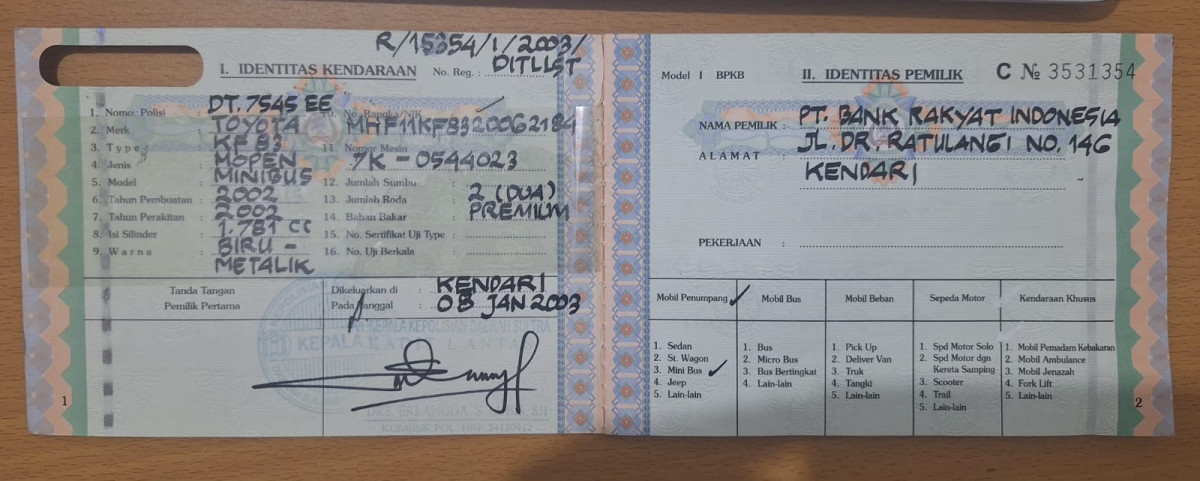 R/15354/1/2003/
DITLLST
I. IDENTITAS KENDARAAN No. Reg. :
1. Nomor Polisi : DT. 7545 EE
2. Merk : TOYOTA
3. Type : KF 83
4. Jenis : MOPEN
5. Model : MINIBUS
6. Tahun Pembuatan : 2002
7. Tahun Perakitan : 2002
8. Isi Silinder : 1.781 CC
9. Warna : BIRU -
METALIK
10. No. Rangka/NIK : MHF11KF8320062184
11. Nomor Mesin : 7K - 0544023
12. Jumlah Sumbu :
13. Jumlah Roda : 2 (DUA)
14. Bahan Bakar : PREMIUM
15. No. Sertifikat Uji Type :
16. No. Uji Berkala :
Tanda Tangan
Pemilik Pertama
Dikeluarkan di : KENDARI
Pada Tanggal : 08 JAN 2003
KEPALA KEPOLISIAN DAERAH SULTRA
KEPALA
DRS. ERLANGGA
KOMBES POL. NRP.
1
Model I BPKB
II. IDENTITAS PEMILIK
C № 3531354
NAMA PEMILIK : PT. BANK RAKYAT INDONESIA
ALAMAT : JL. DR. RATULANGI NO. 146
KENDARI
PEKERJAAN :
Mobil Penumpang
1. Sedan
2. St. Wagon
3. Mini Bus
4. Jeep
5. Lain-lain
Mobil Bus
1. Bus
2. Micro Bus
3. Bus Bertingkat
4. Lain-lain
Mobil Beban
1. Pick Up
2. Deliver Van
3. Truk
4. Tangki
5. Lain-lain
Sepeda Motor
1. Spd Motor Solo
2. Spd Motor dgn
Kereta Samping
3. Scooter
4. Trail
5. Lain-lain
Kendaraan Khusus
1. Mobil Pemadam Kebakaran
2. Mobil Ambulance
3. Mobil Jenazah
4. Fork Lift
5. Lain-lain
2